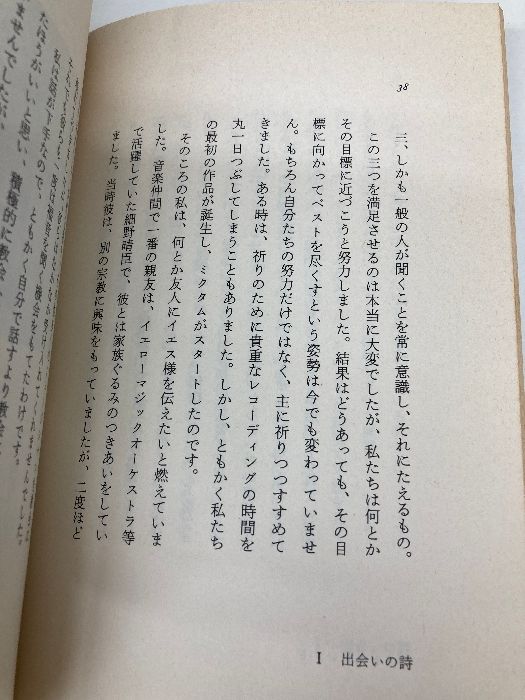 38
三、しかも一般の人が聞くことを常に意識し、それにたえるもの。
この三つを満足させるのは本当に大変でしたが、私たちは何とか
その目標に近づこうと努力しました。結果はどうあっても、その目
標に向かってベストを尽くすという姿勢は今でも変わっていませ
ん。もちろん自分たちの努力だけではなく、主に祈りつつすすめて
きました。ある時は、祈りのために貴重なレコーディングの時間を
丸一日つぶしてしまうこともありました。しかし、ともかく私たち
の最初の作品が誕生し、ミクタムがスタートしたのです。
そのころの私は、何とか友人にイエス様を伝えたいと燃えていま
した。音楽仲間で一番の親友は、イエローマジックオーケストラ等
で活躍していた細野晴臣で、彼とは家族ぐるみのつきあいをしてい
ました。当時彼は、別の宗教に興味をもっていましたが、二度ほど
I 出会いの詩
私は話が下手なので、ともかく自分で話すより教会
たほうがいいと思い、積極的に教会
ませんでしたが、